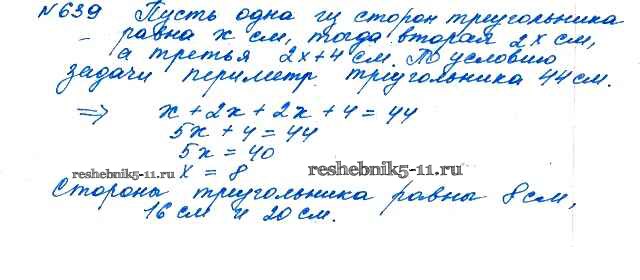 №639 Пусть одна из сторон треугольника
равна x см, тогда вторая 2x см,
а третья 2x+4 см. По условию
задачи периметр треугольника 44 см.
⇒ x + 2x + 2x + 4 = 44
5x + 4 = 44
5x = 40
x = 8
reshebnik5-11.ru reshebnik5-11.ru
Стороны треугольника равны 8 см,
16 см и 20 см.